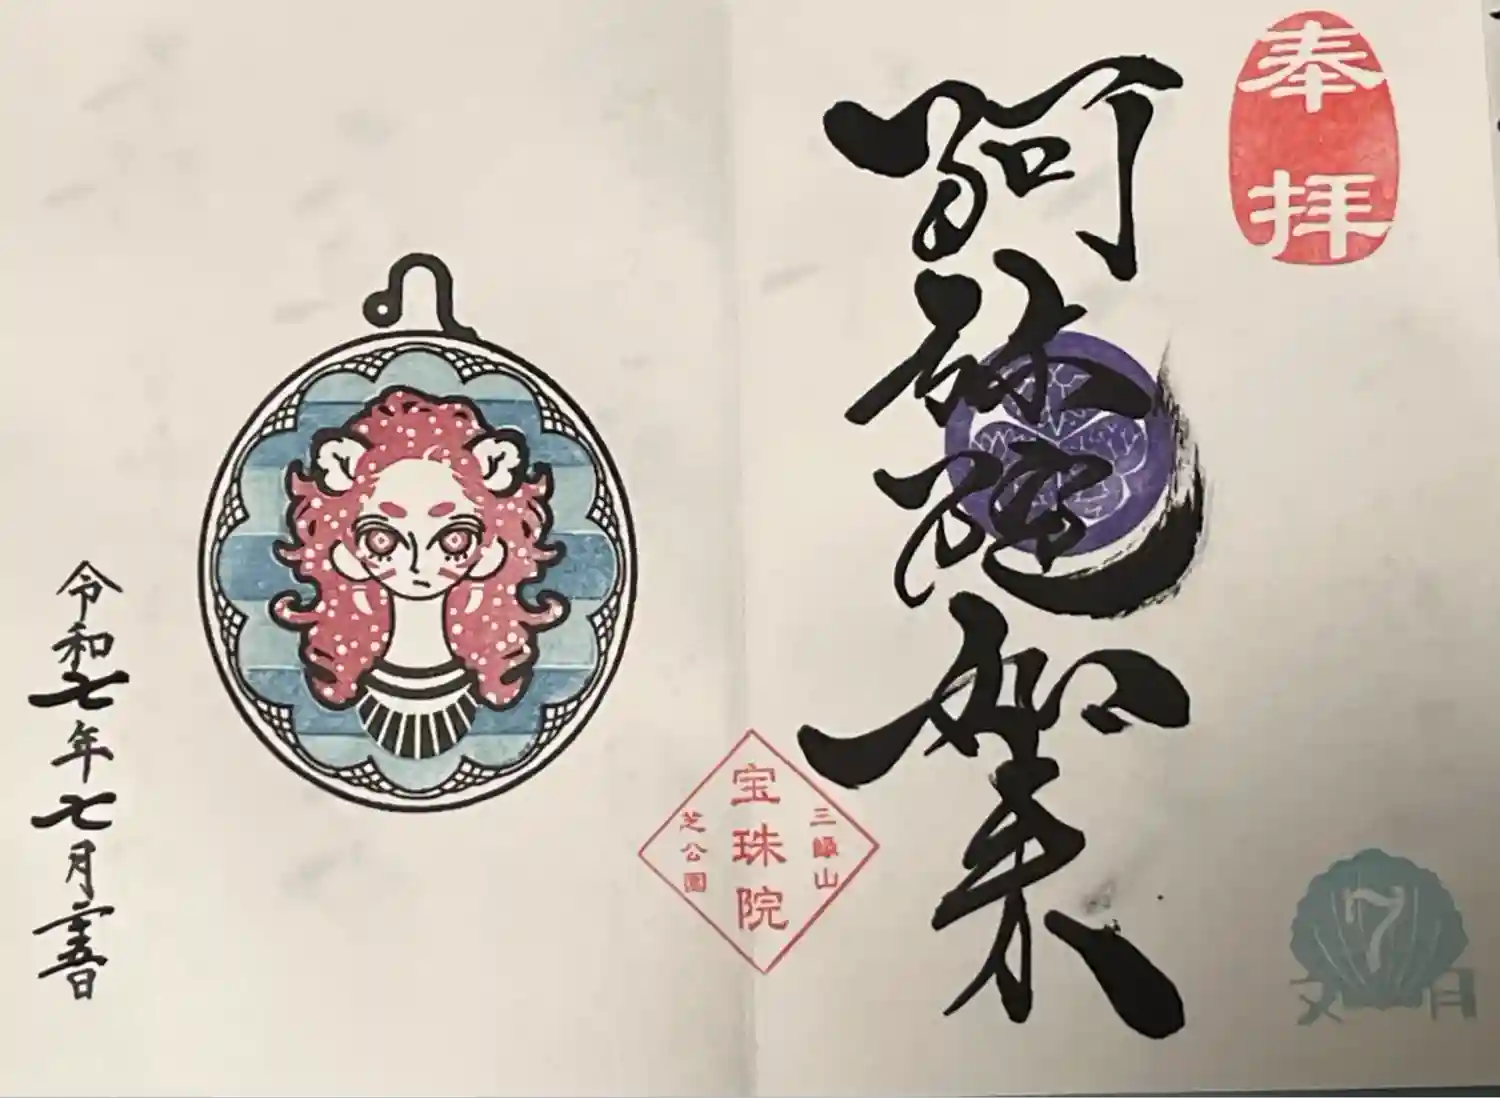 奉拝
阿弥陀如来
7
文月
三縁山
宝珠院
芝公園
令和七年七月二十五日